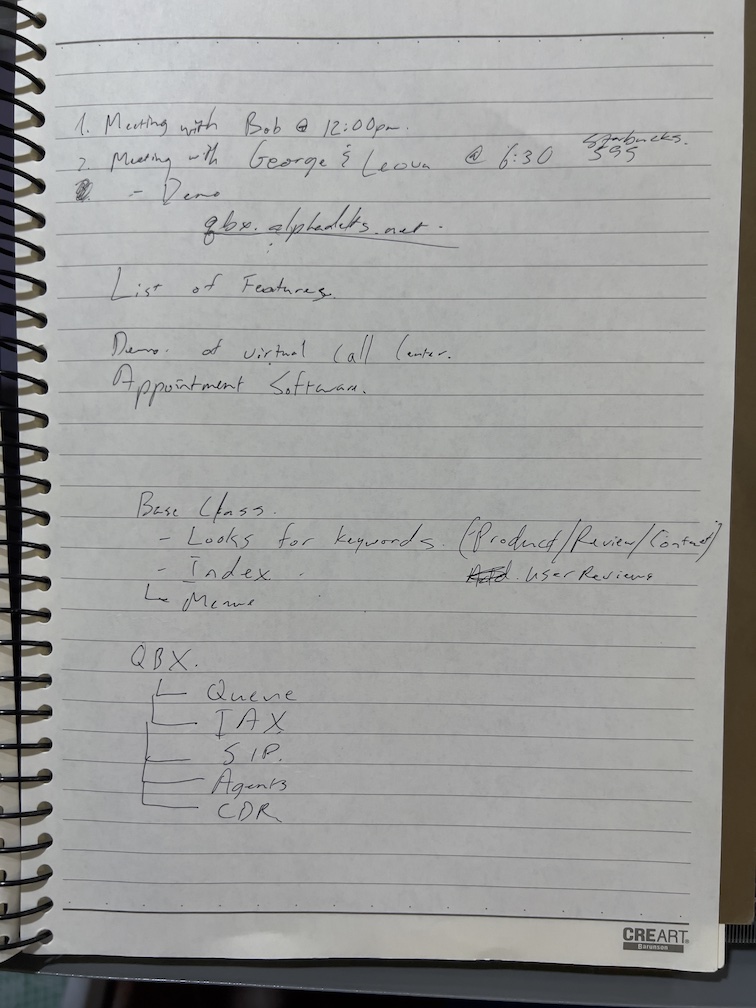 1. Meeting with Bob @ 12:00pm.
Starbucks.
2. Meeting with George & @ 6:30 599
- Demo
List of Features.
Demo. of virtual Call Center.
Appointment Software.
Base Class.
- Looks for keywords. (Product/Review/Contact)
- Index. User Reviews
Menu
QBX.
Queue
IAX
SIP.
Agents
CDR
CREART
Baronson